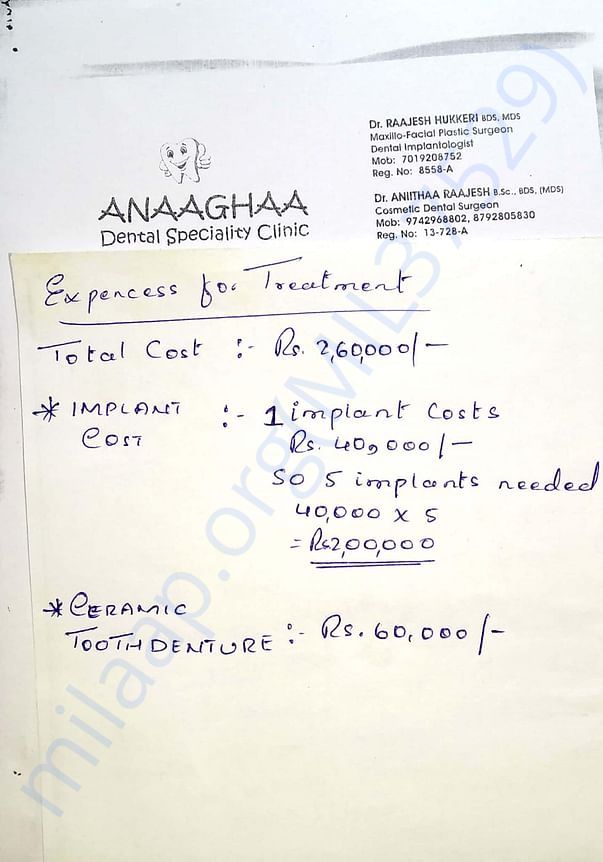 Dr. RAAJESH HUKKERI BDS, MDS
Maxillo-Facial Plastic Surgeon
Dental Implantologist
Mob: 7019208752
Reg. No: 8558-A
Dr. ANIITHAA RAAJESH B.Sc., BDS, (MDS)
Cosmetic Dental Surgeon
Mob: 9742968802, 8792805830
Reg. No: 13-728-A
ANAAGHAA
Dental Speciality Clinic
Expencess for Treatment
Total Cost :- Rs. 2,60,000/-
* IMPLANT COST :- 1 implant Costs
Rs. 40,000/-
So 5 implants needed
40,000 x 5
= Rs 2,00,000
* CERAMIC
TOOTH DENTURE :- Rs. 60,000/-
milaap.org(MIL37529)